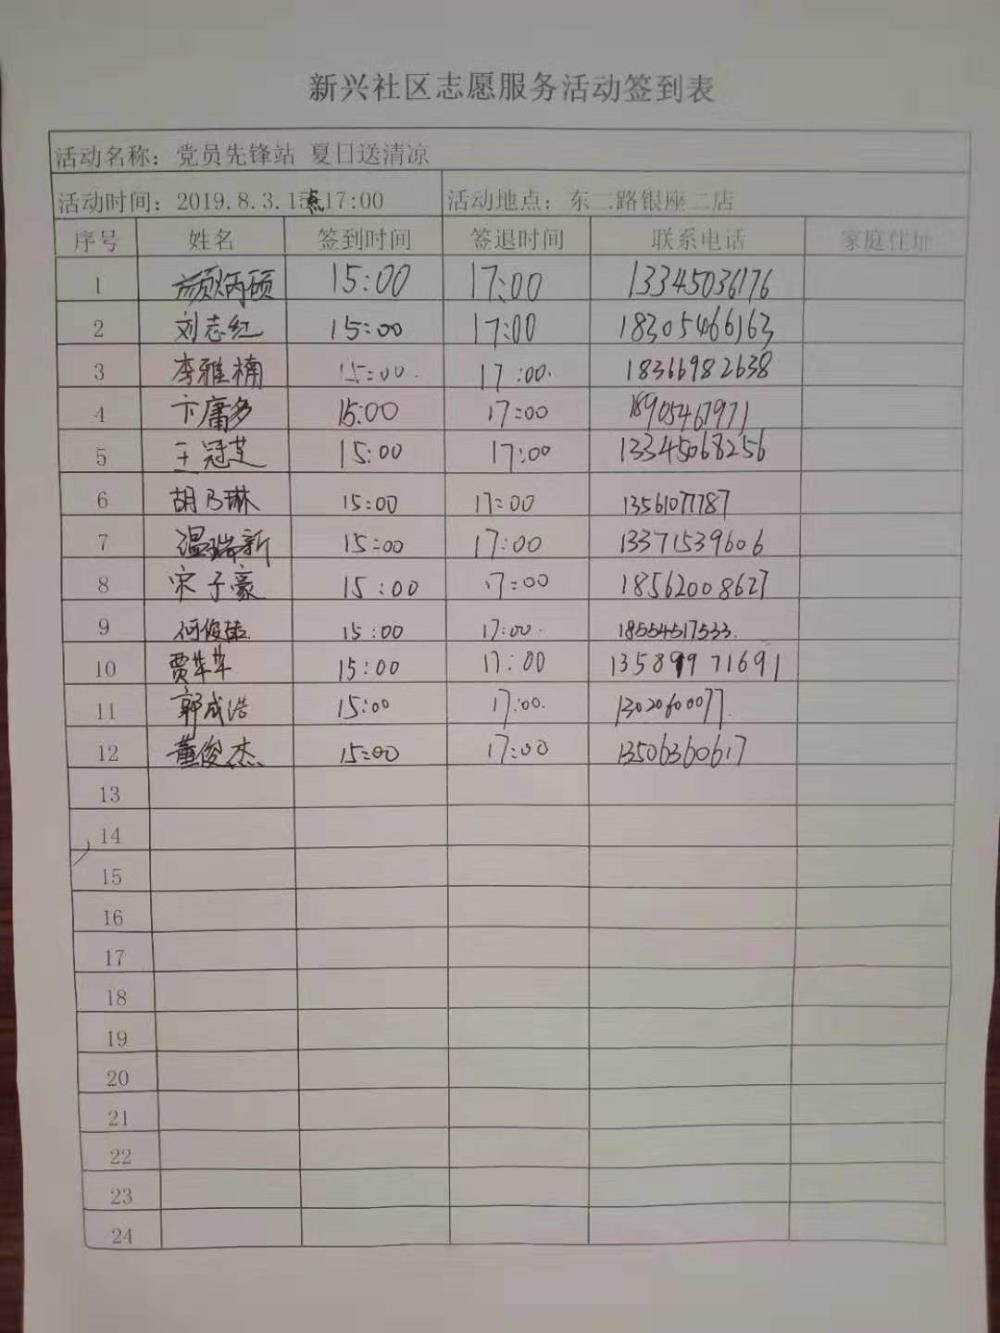 新兴社区志愿服务活动签到表
活动名称：党员先锋站 夏日送清凉
活动时间：2019.8.3.15点17:00 活动地点：东二路银座二店
序号 姓名 签到时间 签退时间 联系电话 家庭住址
1 颜炳硕 15:00 17:00 13345036176
2 刘志红 15:00 17:00 18305466163
3 李雅楠 15:00. 17:00. 18366982638
4 卞庸多 15:00 17:00 18905467971
5 王冠芝 15:00 17:00 13345068256
6 胡乃琳 15:00 17:00 1356107787
7 温瑞新 15:00 17:00 13371539606
8 宋子豪 15:00 17:00 18562008627
9 何俊 15:00 17:00. 18554517533.
10 贾苹苹 15:00 17:00 13589971691
11 郭成浩 15:00 17:00. 1302060077.
12 董俊杰 15:00 17:00 13506360617
13
14
15
16
17
18
19
20
21
22
23
24